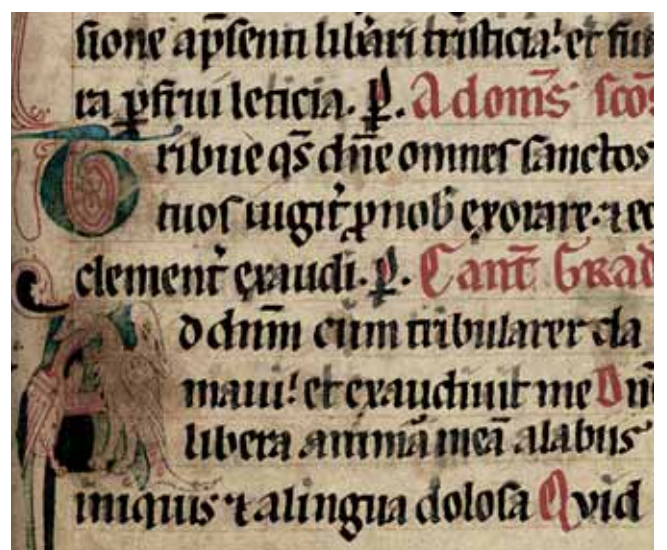 sione ap̃senti lib̾ari tristicia: et fut
ra ꝑfrui leticia. ꝑ. Ad om̃s sc̃os
Tribue q̃s dñe omnes sanctos
tuos iugit̾ ꝓ nob̾ exorare. ⁊ eos
clement̾ exaudi. ꝑ. Cant̃ Grad
Ad dnm̃ cum tribularer cla
maui: et exaudiuit me Dñe
libera animã meã a labiis
iniquis ⁊ a lingua dolosa Quid